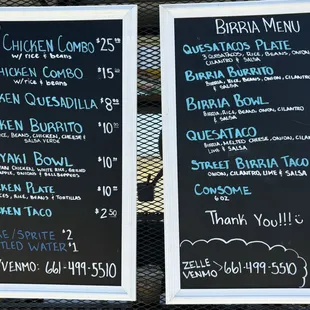 Chicken Combo $25
w/ rice + beans
Chicken Combo $15
w/ rice + beans
Quesadilla $8
Burrito $10
Rice, Beans, Chicken, Cheese &
Salsa Verde
Bowl $10
Chicken, White Rice, Grilled
Onions & Bellpeppers
Plate $10
Rice, Beans, & Tortillas
Taco $2.50
/Sprite $2
Water $1
/Venmo: 661-499-5510
Birria Menu
Quesatacos Plate
3 Quesatacos, Rice, Beans, Onion,
Cilantro & Salsa
Birria Burrito
Birria, Rice, Beans, Onion, Cilantro
& Salsa
Birria Bowl
Birria, Rice, Beans, Onion, Cilantro
& Salsa
Quesataco
Birria, Melted Cheese, Onion, Cilantro
Lime & Salsa
Street Birria Taco
Onion, Cilantro, Lime & Salsa
Consome
6 oz
Thank You!!! :)
Zelle
Venmo >661-499-5510